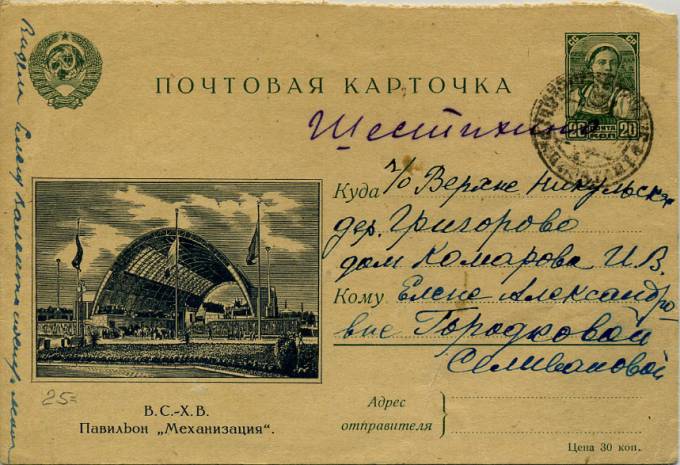 ПОЧТОВАЯ КАРТОЧКА
20 ПОЧТА 20
КОП
Шестихино
Куда п/о Верхне Никульск
дер. Григорово
дом Комарова И.В.
Кому Елене Александро
вне Городковой
Селивановой
Адрес
отправителя
Цена 30 коп.
В.С.-Х.В.
Павильон „Механизация“.
25=
Видела